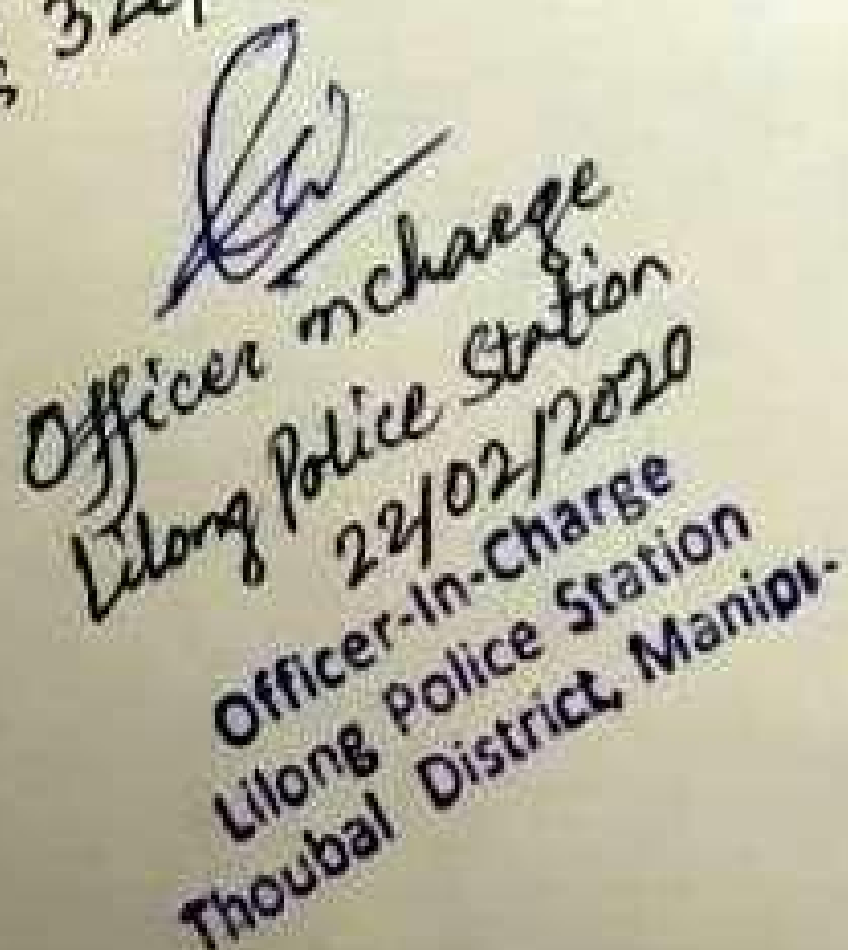 Officer in charge
Lilong Police Station
22/02/2020
Officer-In-Charge
Lilong Police Station
Thoubal District,